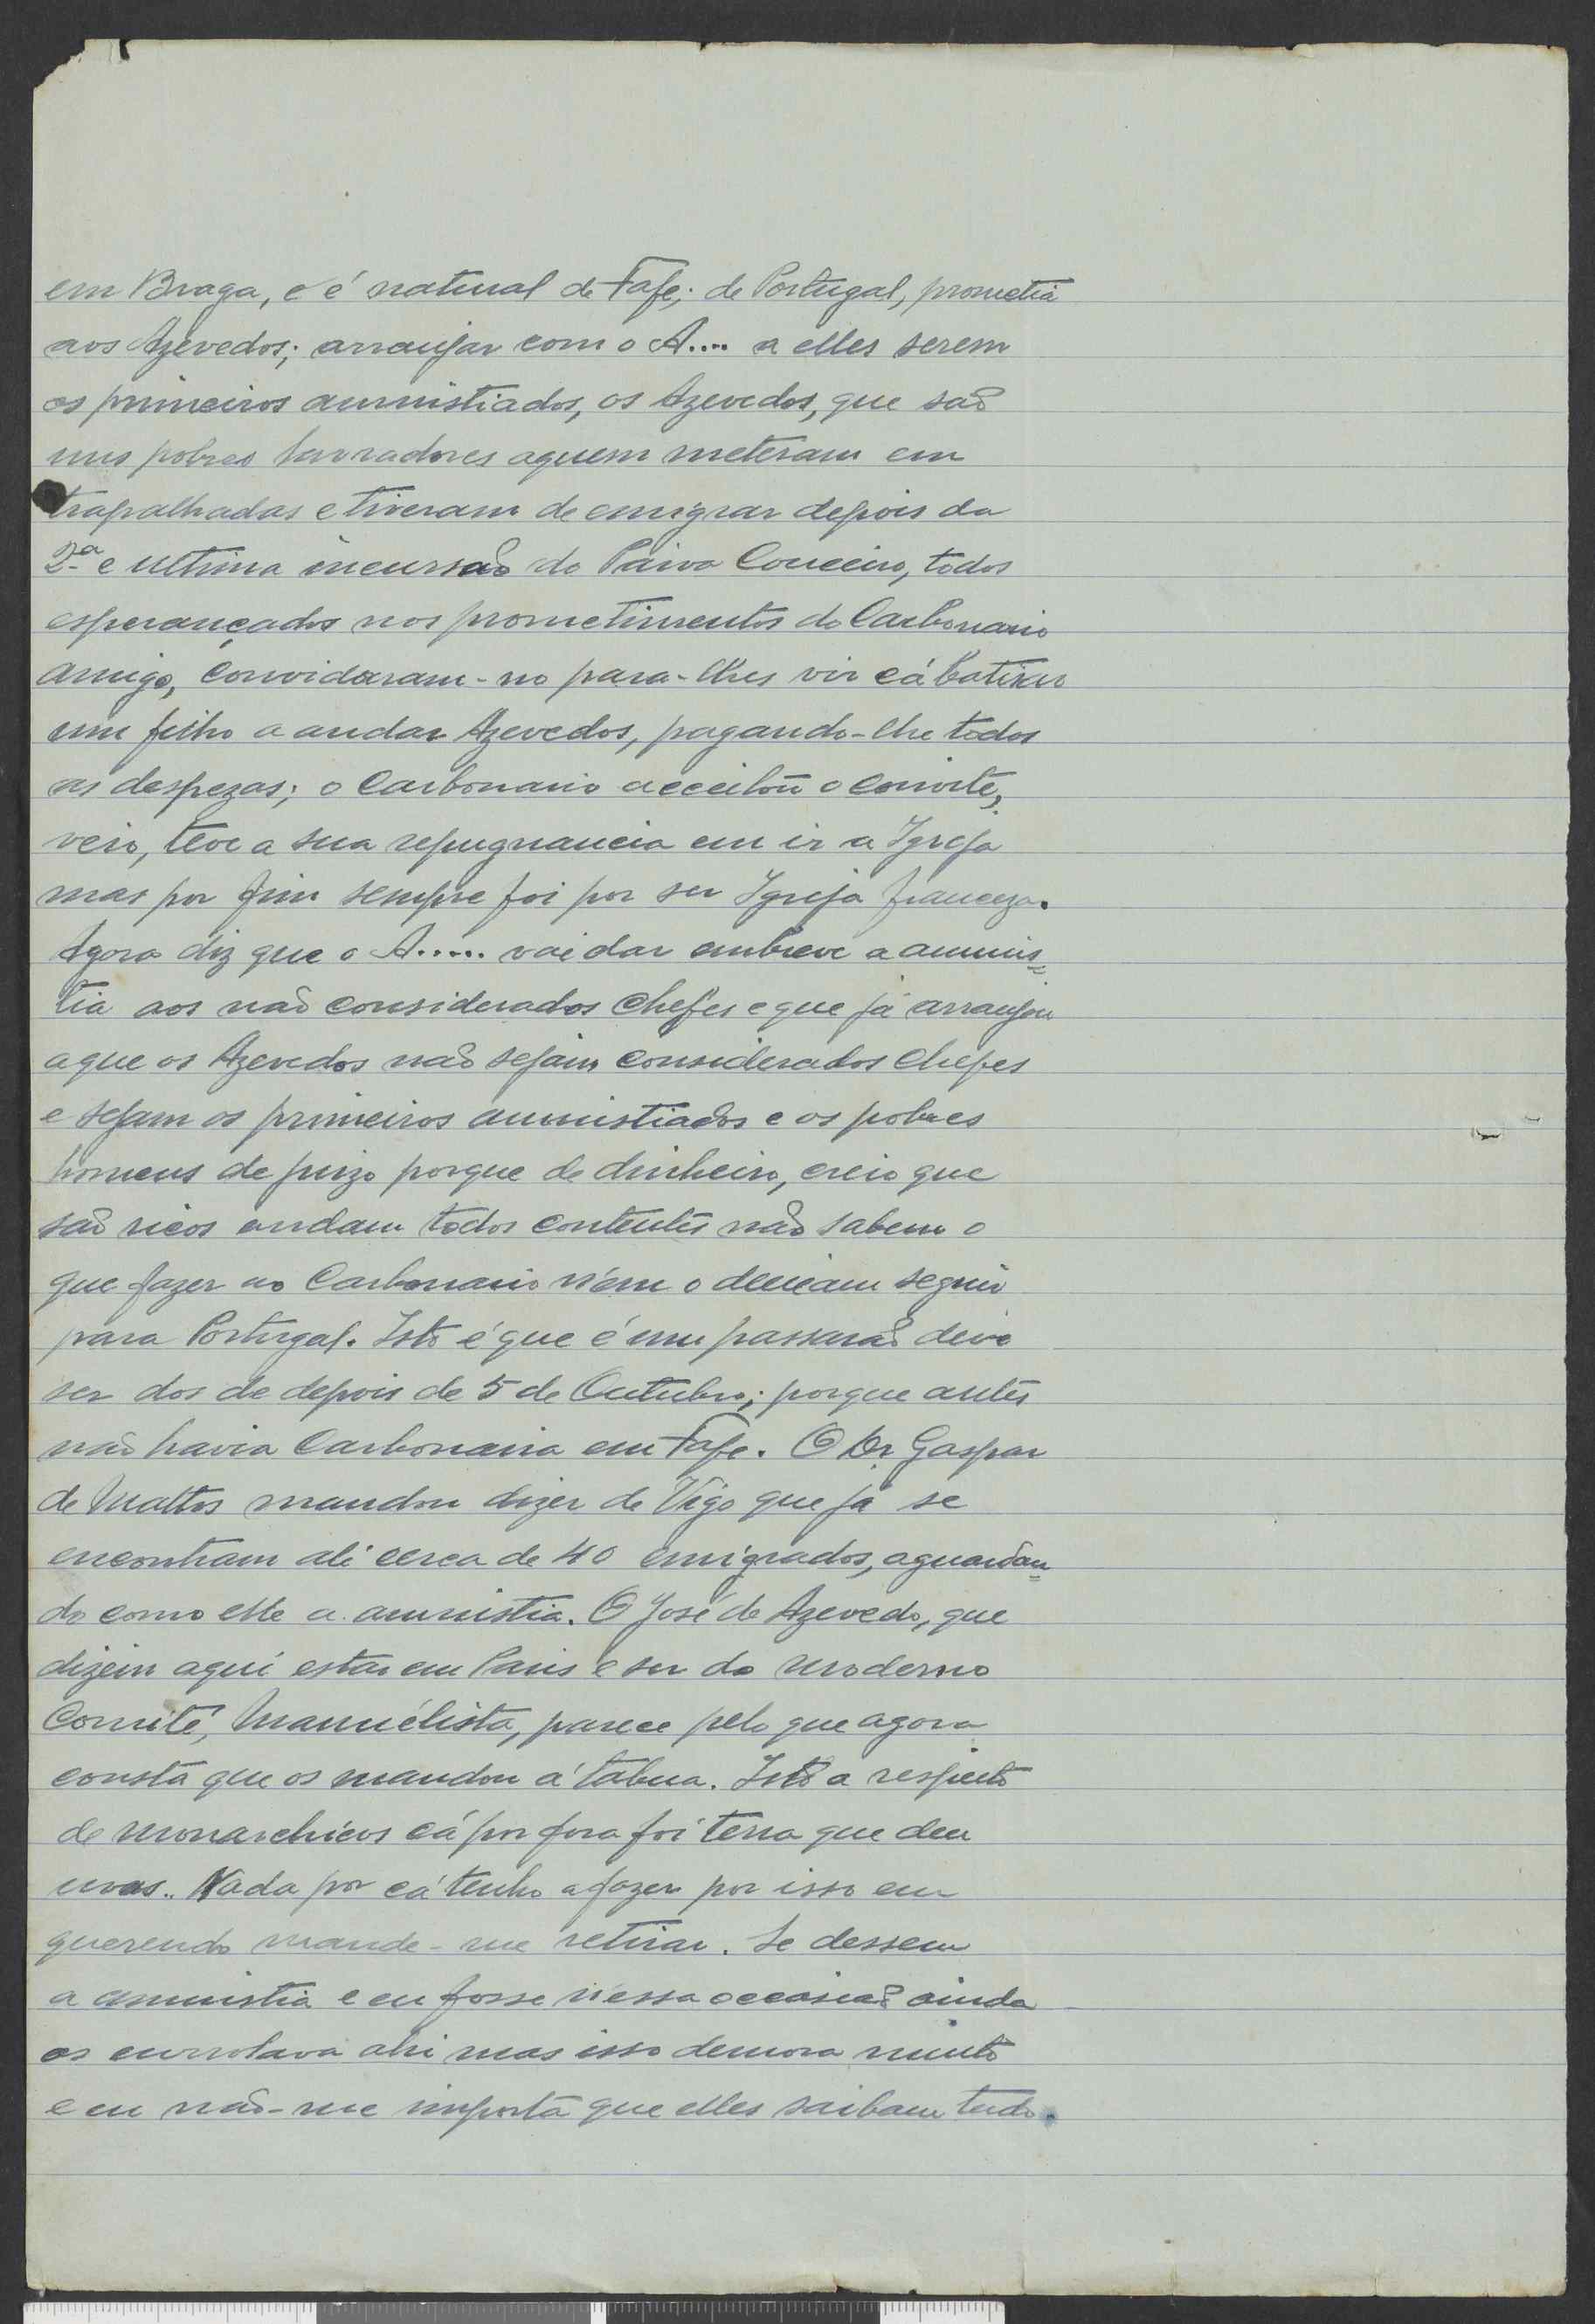 em Braga, e é natural de Fafe; de Portugal, prometia
aos Azevedos; arranjar com o A.... a elles serem
os primeiros amnistiados, os Azevedos, que saõ
uns pobres lavradores aquem meteram em
trapalhadas e tiveram de emigrar depois da
2.ª e ultima incursaõ do Paiva Couceiro, todos
esperançados nos prometimentos do Carbonario
amigo, convidaram-no para-lhes vir cá batisar
um filho a um dos Azevedos, pagando-lhe todos
as despezas; o Carbonario acceitou o convite,
veio, teve a sua repugnancia em ir a Igreja
mas por fim sempre foi por ser Igreja franceza.
Agora diz que o A..... vai dar embreve a amnis=
tia aos naõ considerados Chefes e que já arranjou
a que os Azevedos naõ sejam considerados Chefes
e sejam os primeiros amnistiados e os pobres
homens de juizo porque de dinheiro, creio que
saõ ricos andam todos contentes naõ sabem o
que fazer ao Carbonario n'em o deixam seguir
para Portugal. Isto é que é um passaraõ deve
ser dos de depois de 5 de Outubro; porque antes
naõ havia Carbonaria em Fafe. O Dr Gaspar
de Mattos mandou dizer de Vigo que já se
encontram ali cerca de 40 emigrados, aguardan=
do como elle a amnistia. O José de Azevedo, que
dizem aqui estar em Paris e ser do moderno
Comité, Manuélista, parece pelo que agora
consta que os mandou á tabua. Isto a respeito
de monarchicos cá por fora foi terra que deu
uvas.. Nada por cá tenho a fazer por isso em
querendo mande-me retirar. Se dessem
a amnistia e eu fosse n'essa occasiaõ ainda
os enrolava ahi mas isso demora muito
e eu naõ-me importa que elles saibam tudo.